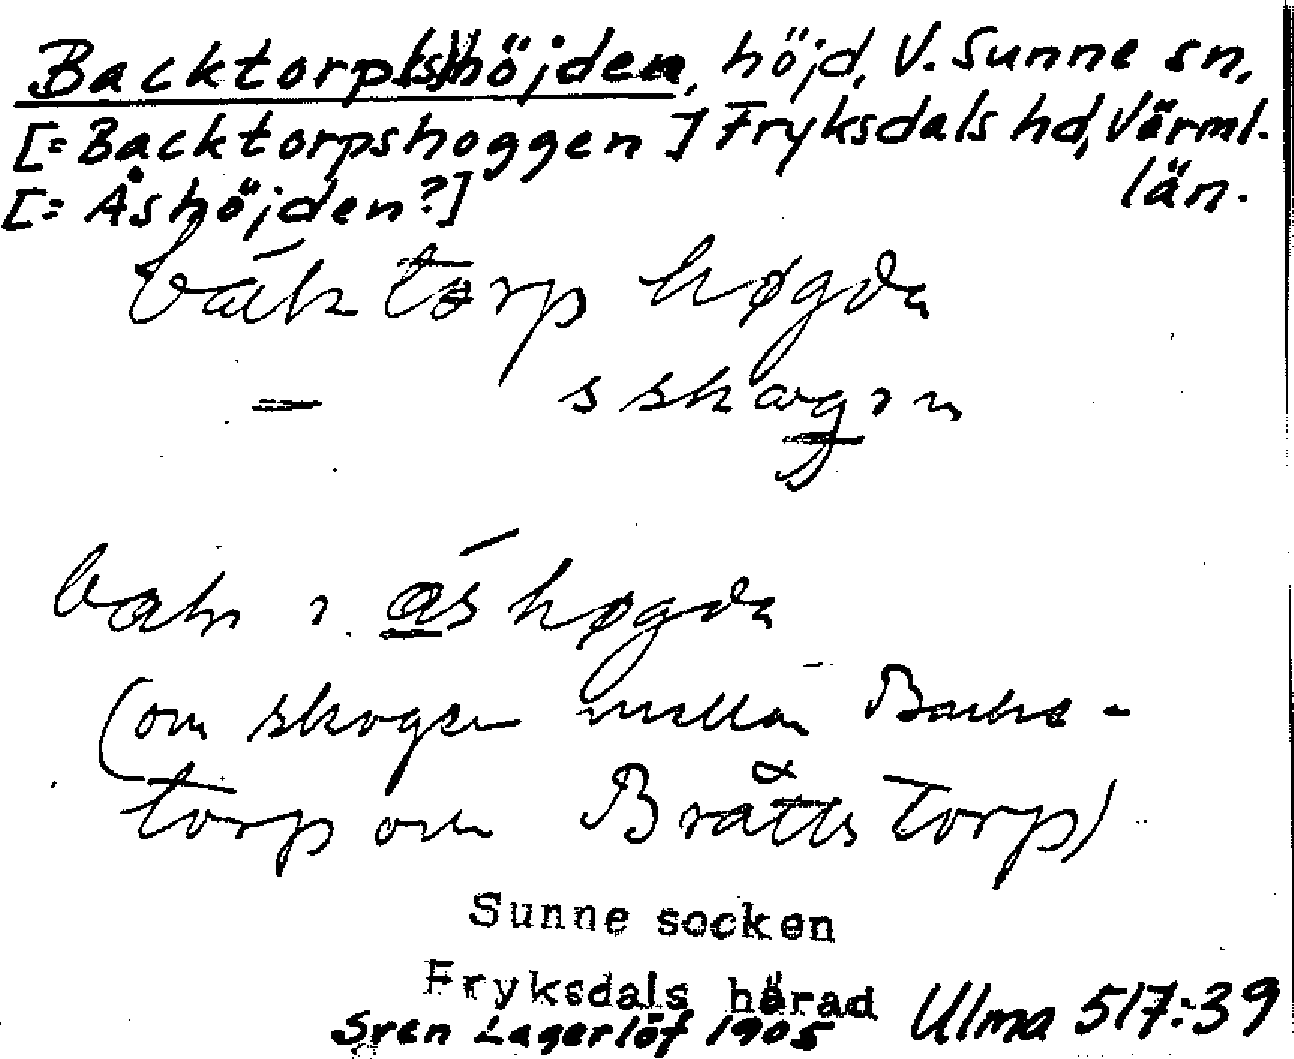 Backtorp(s)höjden, höjd, V. Sunne sn,
[= Backtorpshoggen] Fryksdals hd, Värml.
[= Åshöjden?] län.
torp høgda
— s
høgda
(om skogen mellan Backe-
torp och Bråttstorp)
Sunne socken
Fryksdals härad
Sven Lagerlöf 1905 Ulma 517:39